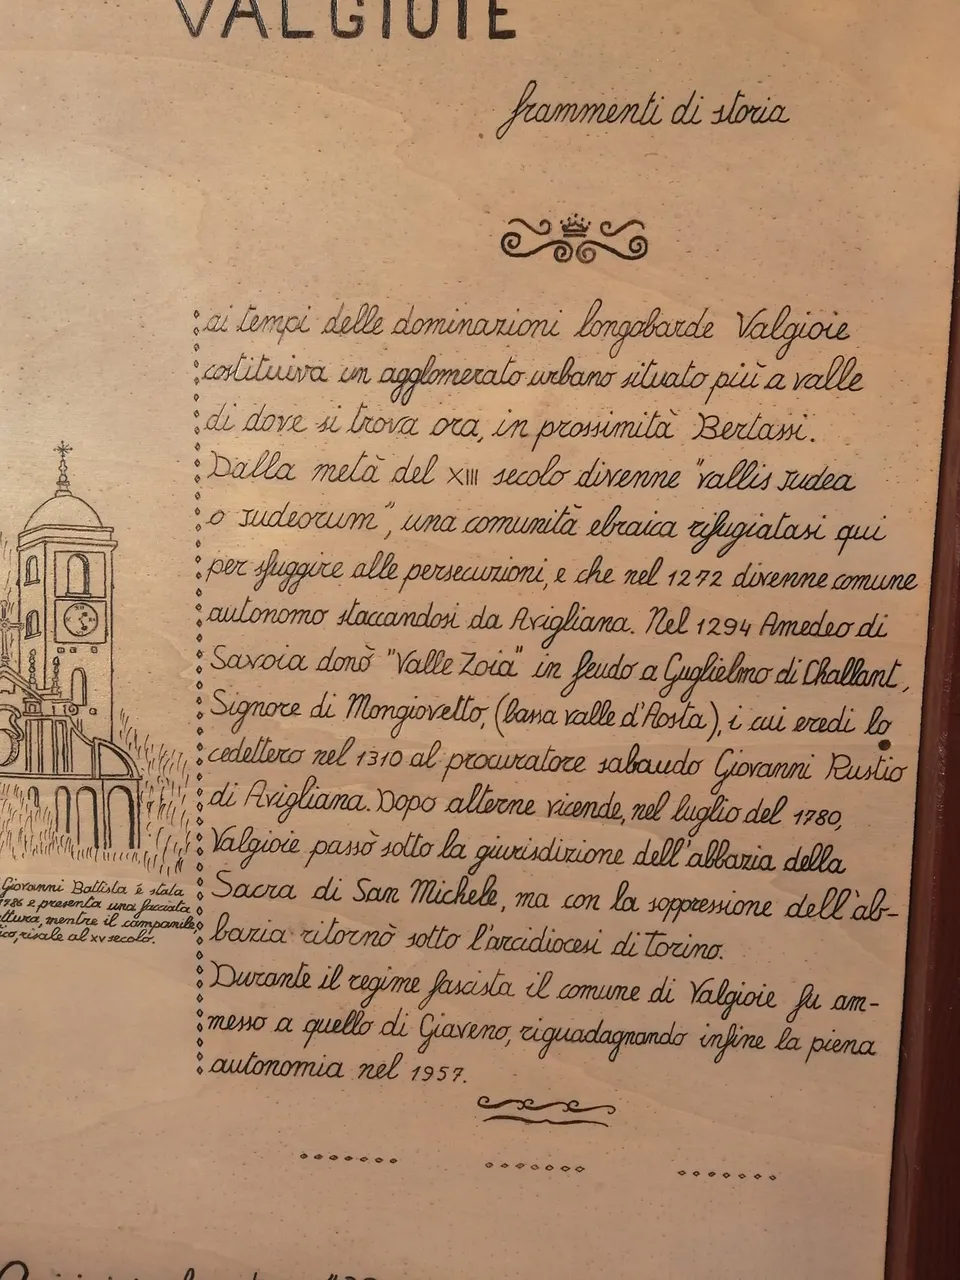 VALGIOIE
frammenti di storia
ai tempi delle dominazioni longobarde Valgioie
costituiva un agglomerato urbano situato più a valle
di dove si trova ora, in prossimità Bertassi.
Dalla metà del XIII secolo divenne "vallis Judea
o Judeorum", una comunità ebraica rifugiatasi qui
per sfuggire alle persecuzioni, e che nel 1272 divenne comune
autonomo staccandosi da Avigliana. Nel 1294 Amedeo di
Savoia donò "Valle Zoia" in feudo a Guglielmo di Challant,
Signore di Mongiovetto, (bassa valle d'Aosta), i cui eredi lo
cedettero nel 1310 al procuratore sabaudo Giovanni Rustio
di Avigliana. Dopo alterne vicende, nel luglio del 1780,
Valgioie passò sotto la giurisdizione dell'abbazia della
Sacra di San Michele, ma con la soppressione dell'ab-
bazia ritornò sotto l'arcidiocesi di Torino.
Durante il regime fascista il comune di Valgioie fu am-
messo a quello di Giaveno, riguadagnando infine la piena
autonomia nel 1957.
Giovanni Battista è stata
1786 e presenta una facciata
mentre il campanile,
risale al XV secolo.